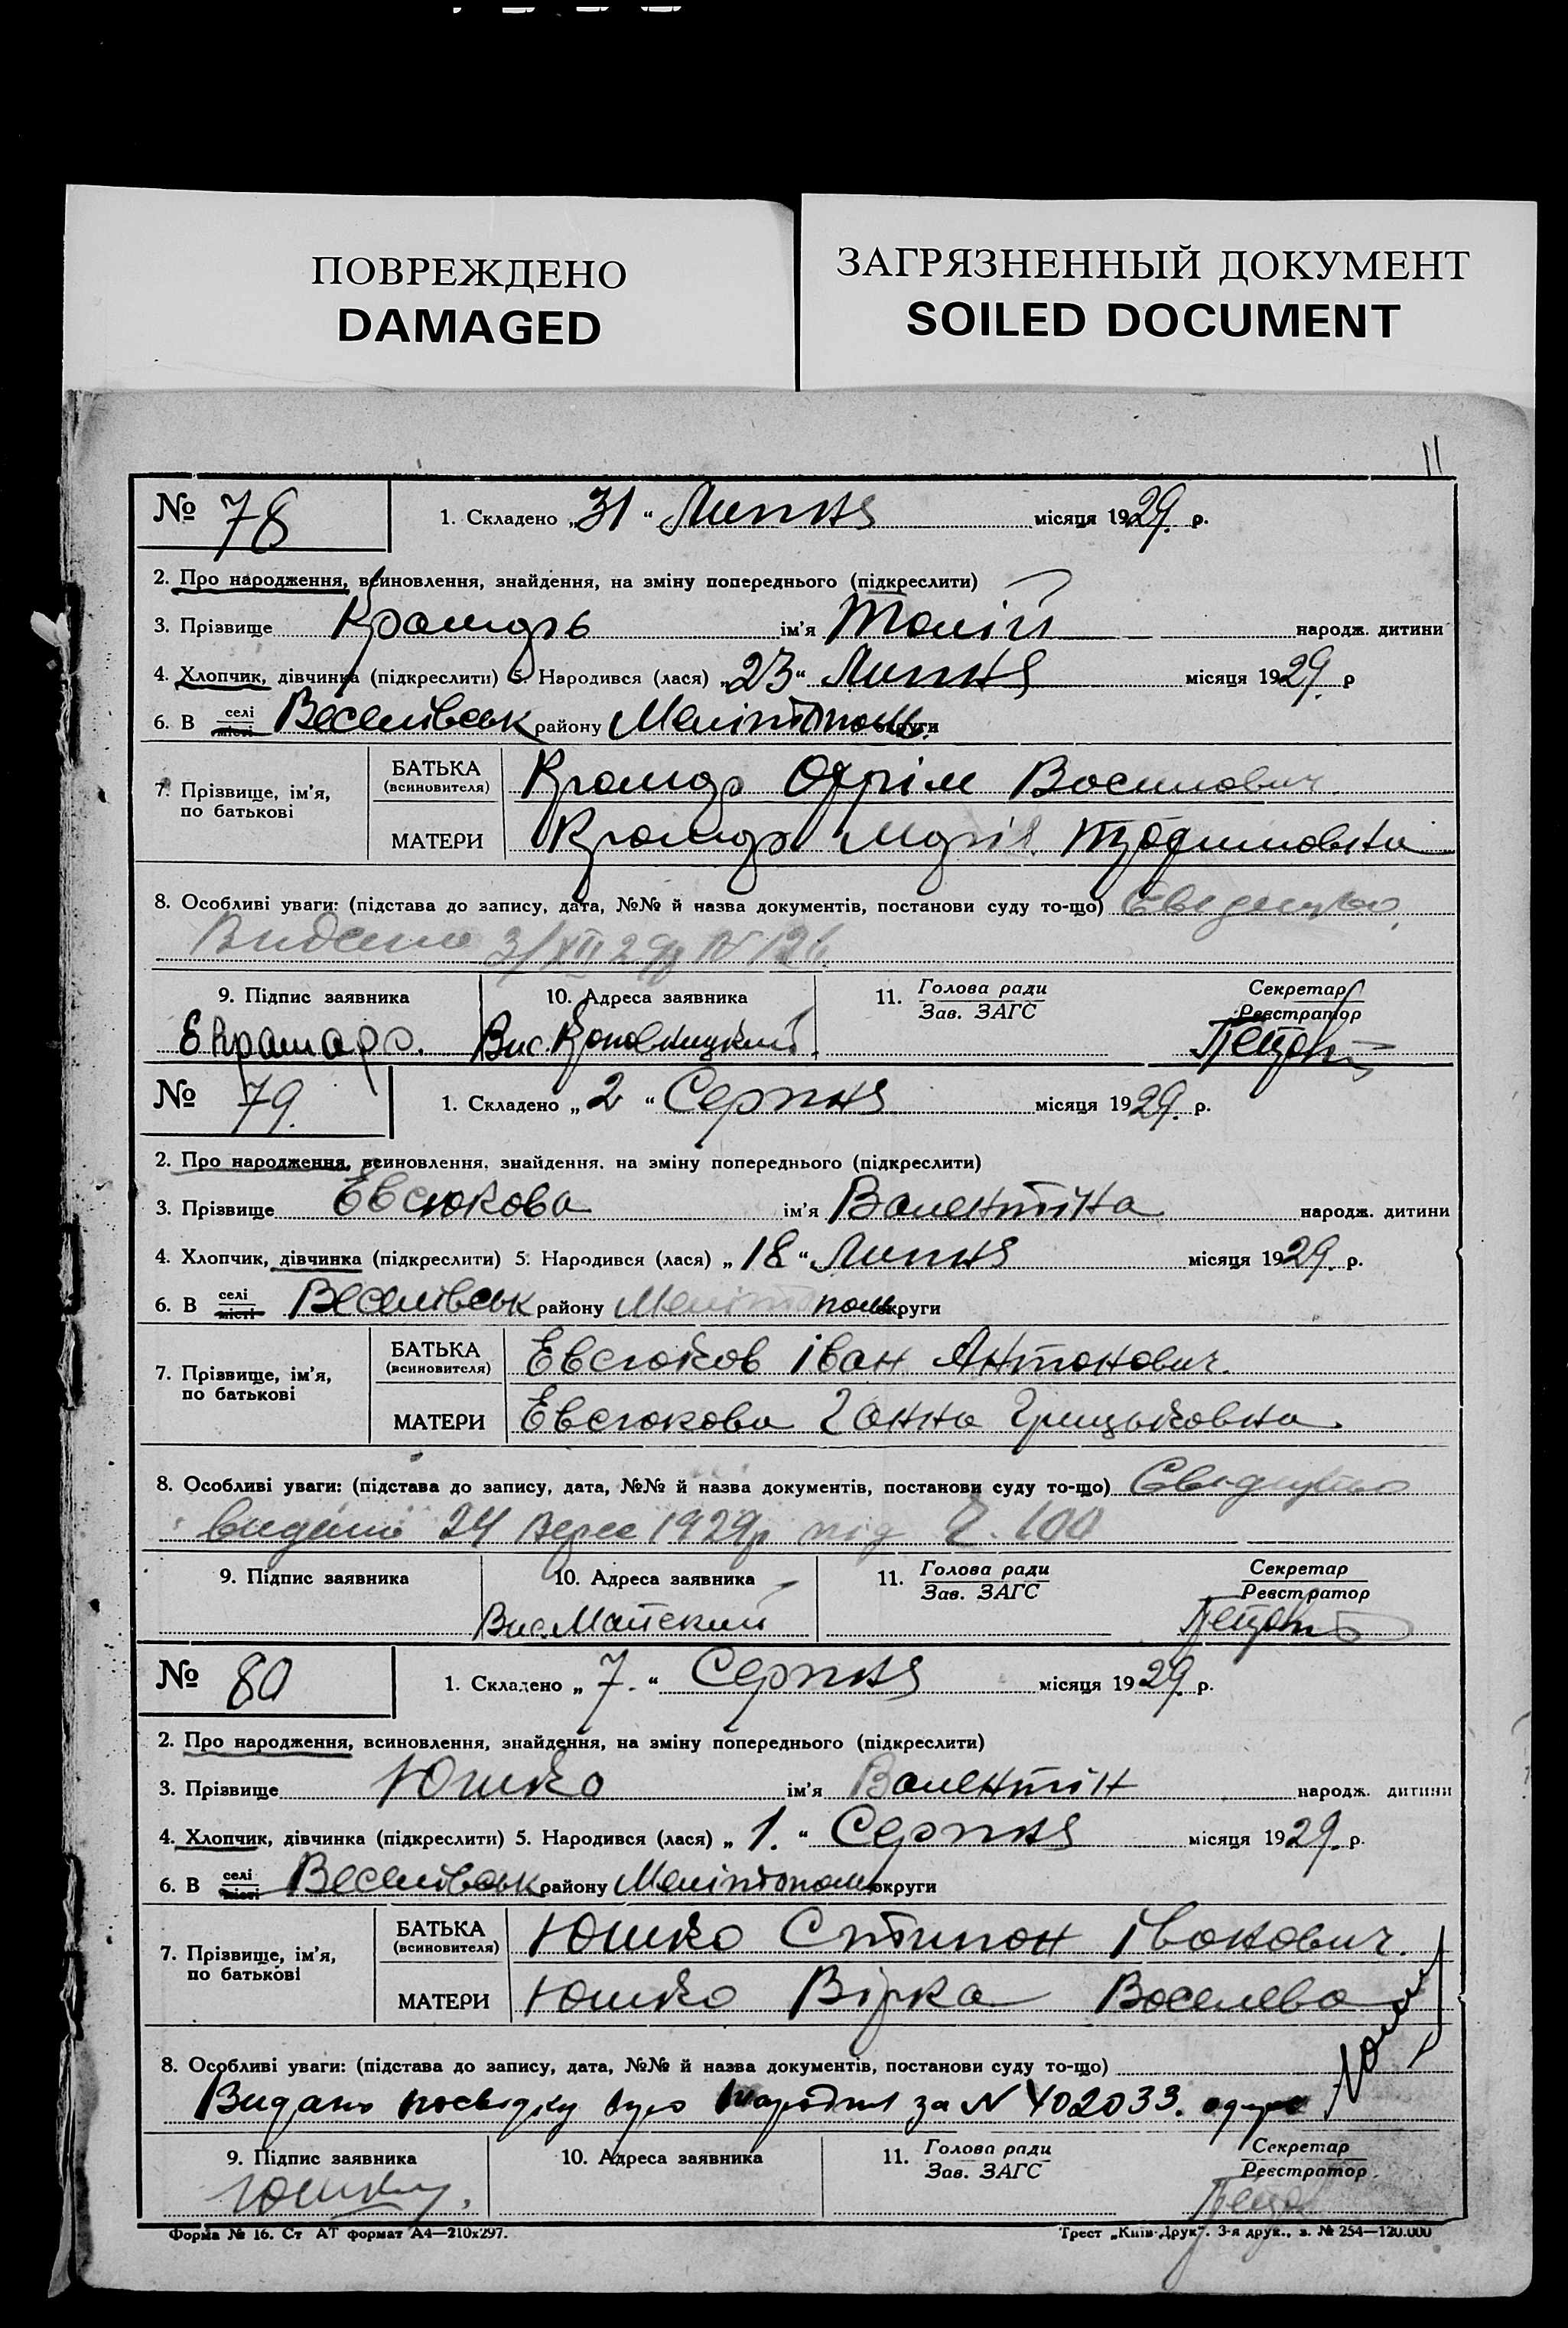 ПОВРЕЖДЕНО
DAMAGED
ЗАГРЯЗНЕННЫЙ ДОКУМЕНТ
SOILED DOCUMENT
11
№ 78
1. Складено „31“ Липня місяця 1929. р.
2. Про народження, всиновлення, знайдення, на зміну попереднього (підкреслити)
3. Прізвище Крамарь ім'я Толій народж. дитини
4. Хлопчик, дівчинка (підкреслити) 5. Народився (лася) „23“ Липня місяця 1929. р
6. В селі місті Веселівськ району Мелітопольс. округи
7. Прізвище, ім'я, по батькові
БАТЬКА (всиновителя) Крамар Охрім Василович
МАТЕРИ Крамар Марія Трофимовна
8. Особливі уваги: (підстава до запису, дата, №№ й назва документів, постанови суду то-що)
Видано
9. Підпис заявника
10. Адреса заявника
11. Голова ради Зав. ЗАГС
Секретар Реєстратор
Е Крамарь. Вис.
№ 79.
1. Складено „2“ Серпня місяця 1929. р.
2. Про народження, всиновлення, знайдення, на зміну попереднього (підкреслити)
3. Прізвище Евсюкова ім'я Валентіна народж. дитини
4. Хлопчик, дівчинка (підкреслити) 5. Народився (лася) „18“ Липня місяця 1929. р.
6. В селі місті Веселівськ району Мелітополь округи
7. Прізвище, ім'я, по батькові
БАТЬКА (всиновителя) Евсюков Іван Антонович.
МАТЕРИ Евсюкова Ганна Грицьковна.
8. Особливі уваги: (підстава до запису, дата, №№ й назва документів, постанови суду то-що) Свідоцтво
видано 24 Верес 1929р під Ч. 100
9. Підпис заявника
10. Адреса заявника
11. Голова ради Зав. ЗАГС
Секретар Реєстратор
Вис. Майский
№ 80
1. Складено „7.“ Серпня місяця 1929. р.
2. Про народження, всиновлення, знайдення, на зміну попереднього (підкреслити)
3. Прізвище Юшко ім'я Валентін народж. дитини
4. Хлопчик, дівчинка (підкреслити) 5. Народився (лася) „1.“ Серпня місяця 1929. р.
6. В селі місті Веселівськ району Мелітополь округи
7. Прізвище, ім'я, по батькові
БАТЬКА (всиновителя) Юшко Степан Іванович.
МАТЕРИ Юшко Вірка
8. Особливі уваги: (підстава до запису, дата, №№ й назва документів, постанови суду то-що)
Видано посвідку за N 402033.
9. Підпис заявника
10. Адреса заявника
11. Голова ради Зав. ЗАГС
Секретар Реєстратор
Форма № 16. Ст АТ формат А4—210х297.
Трест „Київ-Друк“. 3-я друк., з. № 254—120.000